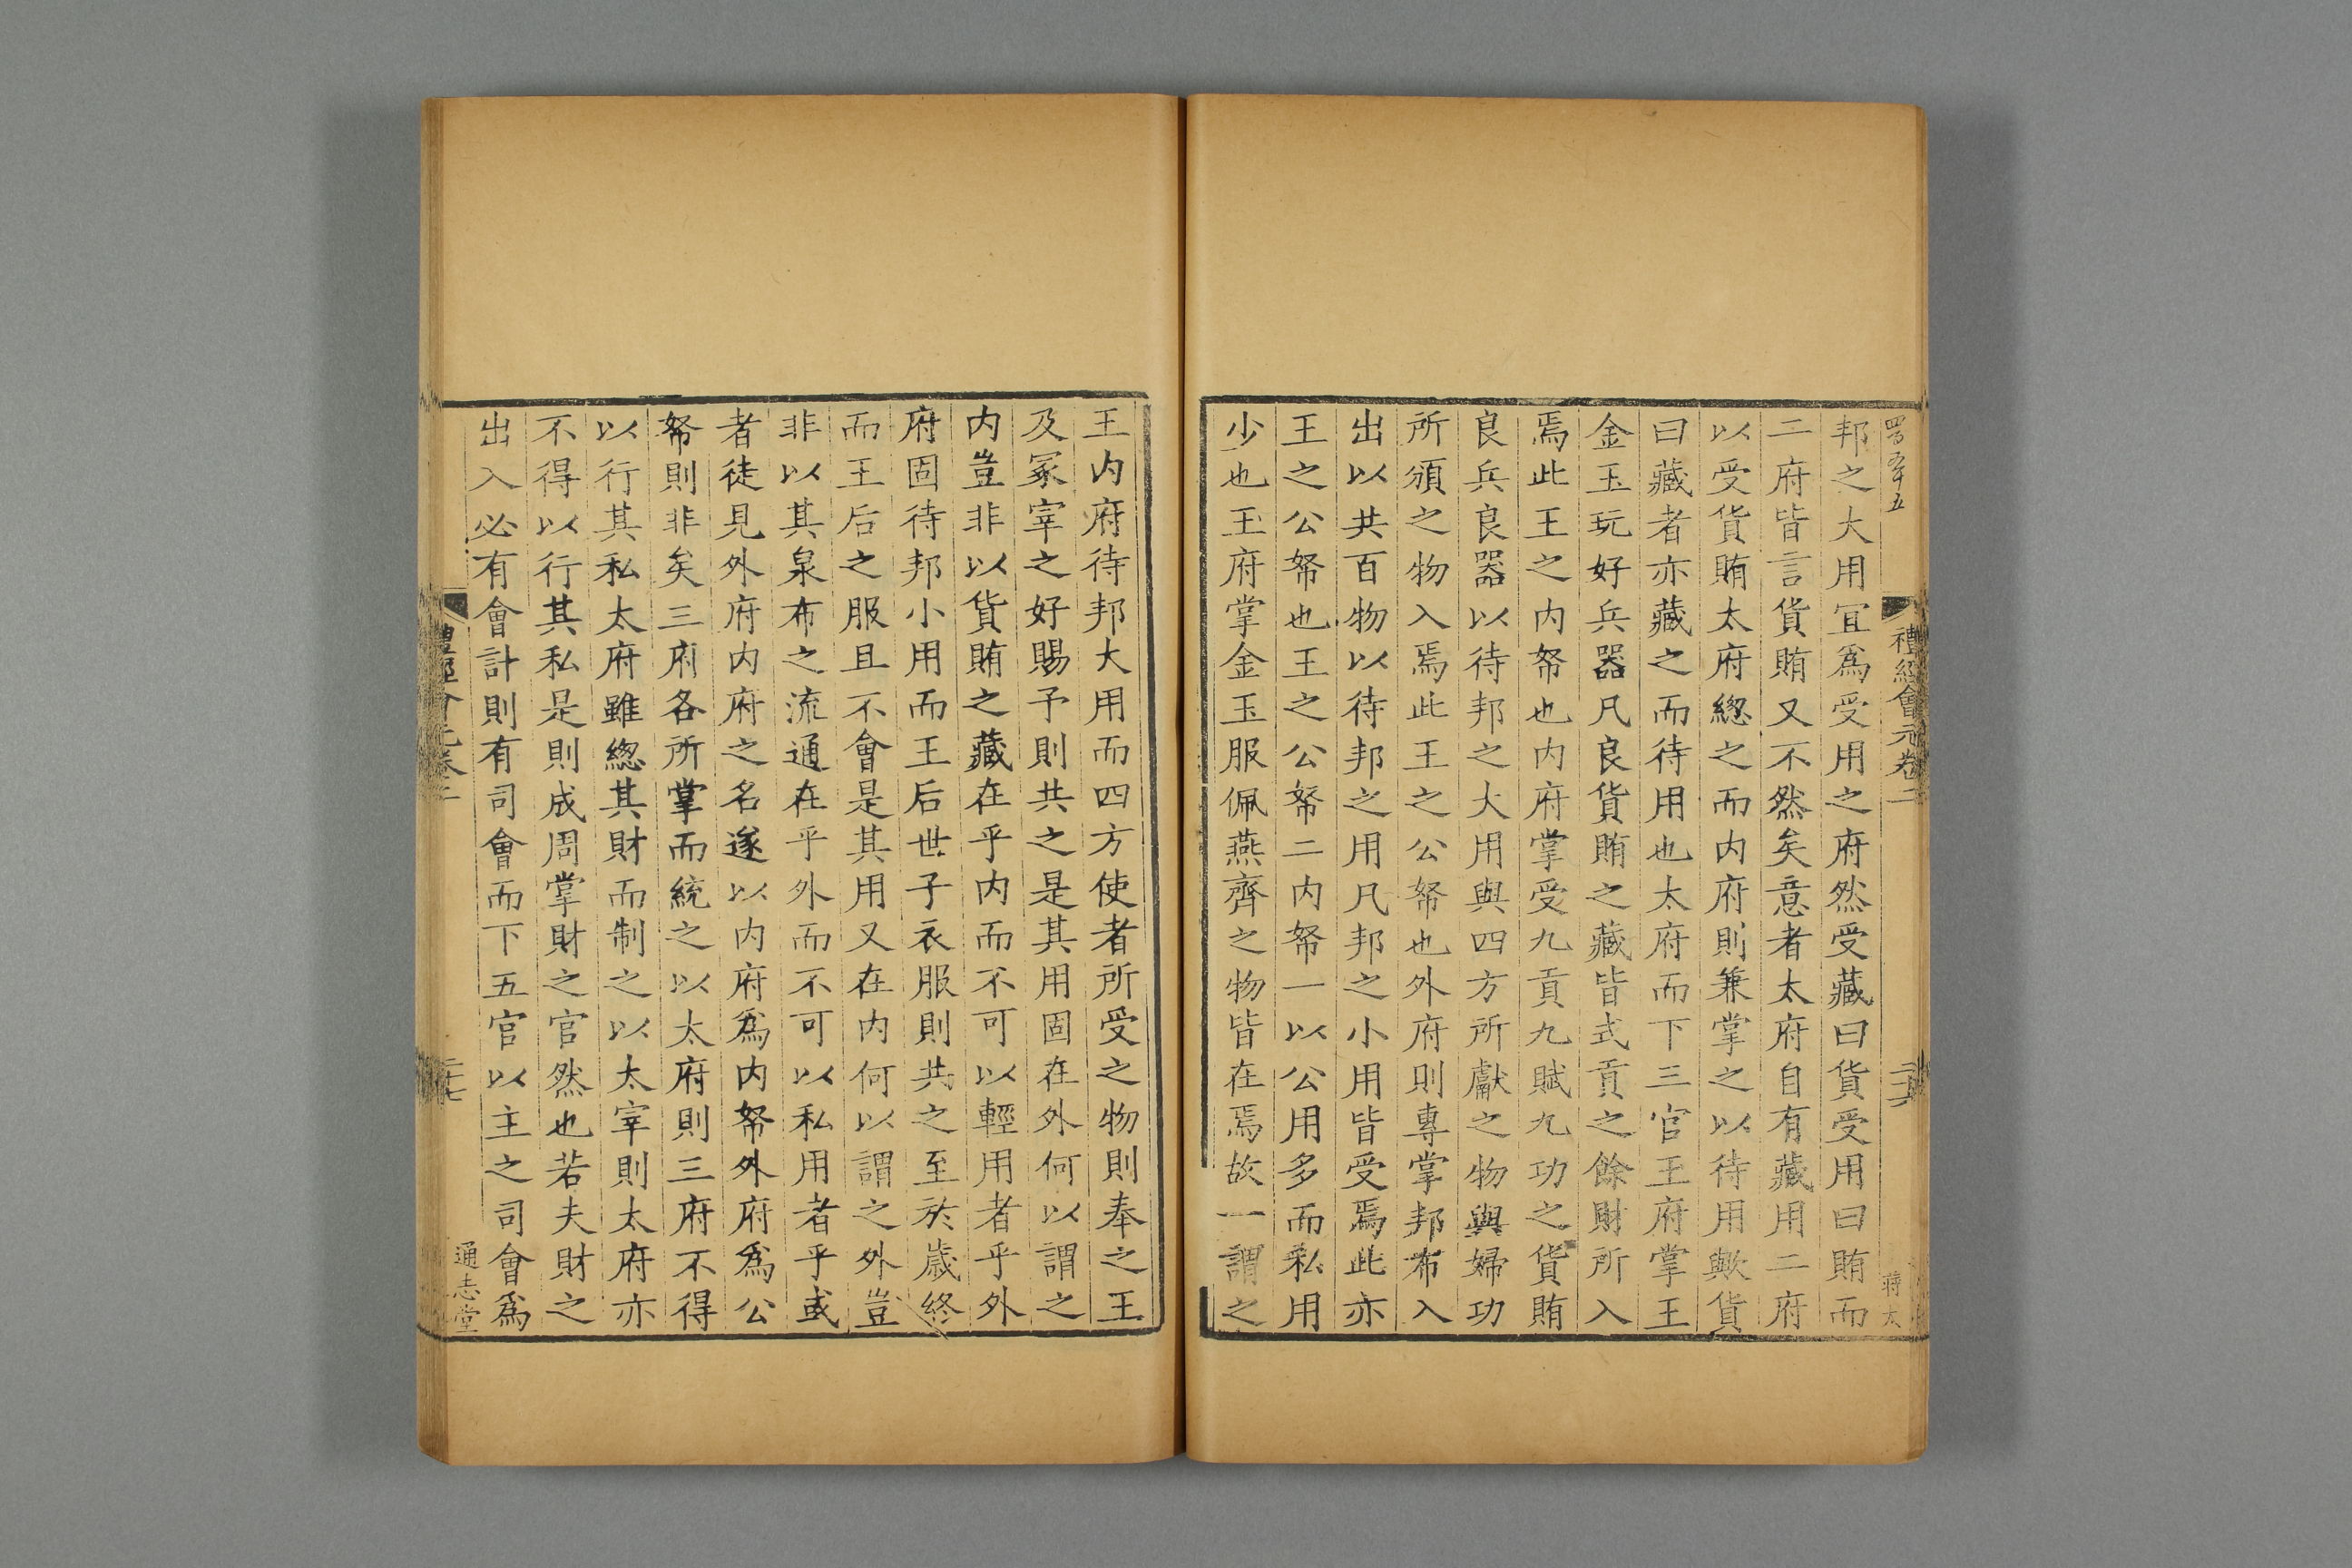 禮經會元卷二
二六
蔣太
邦之大用宜爲受用之府然受藏曰貨受用曰賄而
二府皆言貨賄又不然矣意者太府自有藏用二府
以受貨賄太府緫之而内府則兼掌之以待用歟貨
曰藏者亦藏之而待用也太府而下三官玉府掌王
金玉玩好兵器凡良貨賄之藏皆式貢之餘財所入
焉此王之内帑也内府掌受九貢九賦九功之貨賄
良兵良器以待邦之大用與四方所獻之物與婦功
所頒之物入焉此王之公帑也外府則專掌邦布入
出以共百物以待邦之用凡邦之小用皆受焉此亦
王之公帑也王之公帑二内帑一以公用多而私用
少也玉府掌金玉服佩燕齊之物皆在焉故一謂之
王内府待邦大用而四方使者所受之物則奉之王
及冢宰之好賜予則共之是其用固在外何以謂之
内豈非以貨賄之藏在乎内而不可以輕用者乎外
府固待邦小用而王后世子衣服則共之至於歲終
而王后之服且不會是其用又在内何以謂之外豈
非以其泉布之流通在乎外而不可以私用者乎或
者徒見外府内府之名遂以内府爲内帑外府爲公
帑則非矣三府各所掌而統之以太府則三府不得
以行其私太府雖緫其財而制之以太宰則太府亦
不得以行其私是則成周掌財之官然也若夫財之
出入必有會計則有司會而下五官以主之司會爲
禮經會元卷二
二七
通志堂